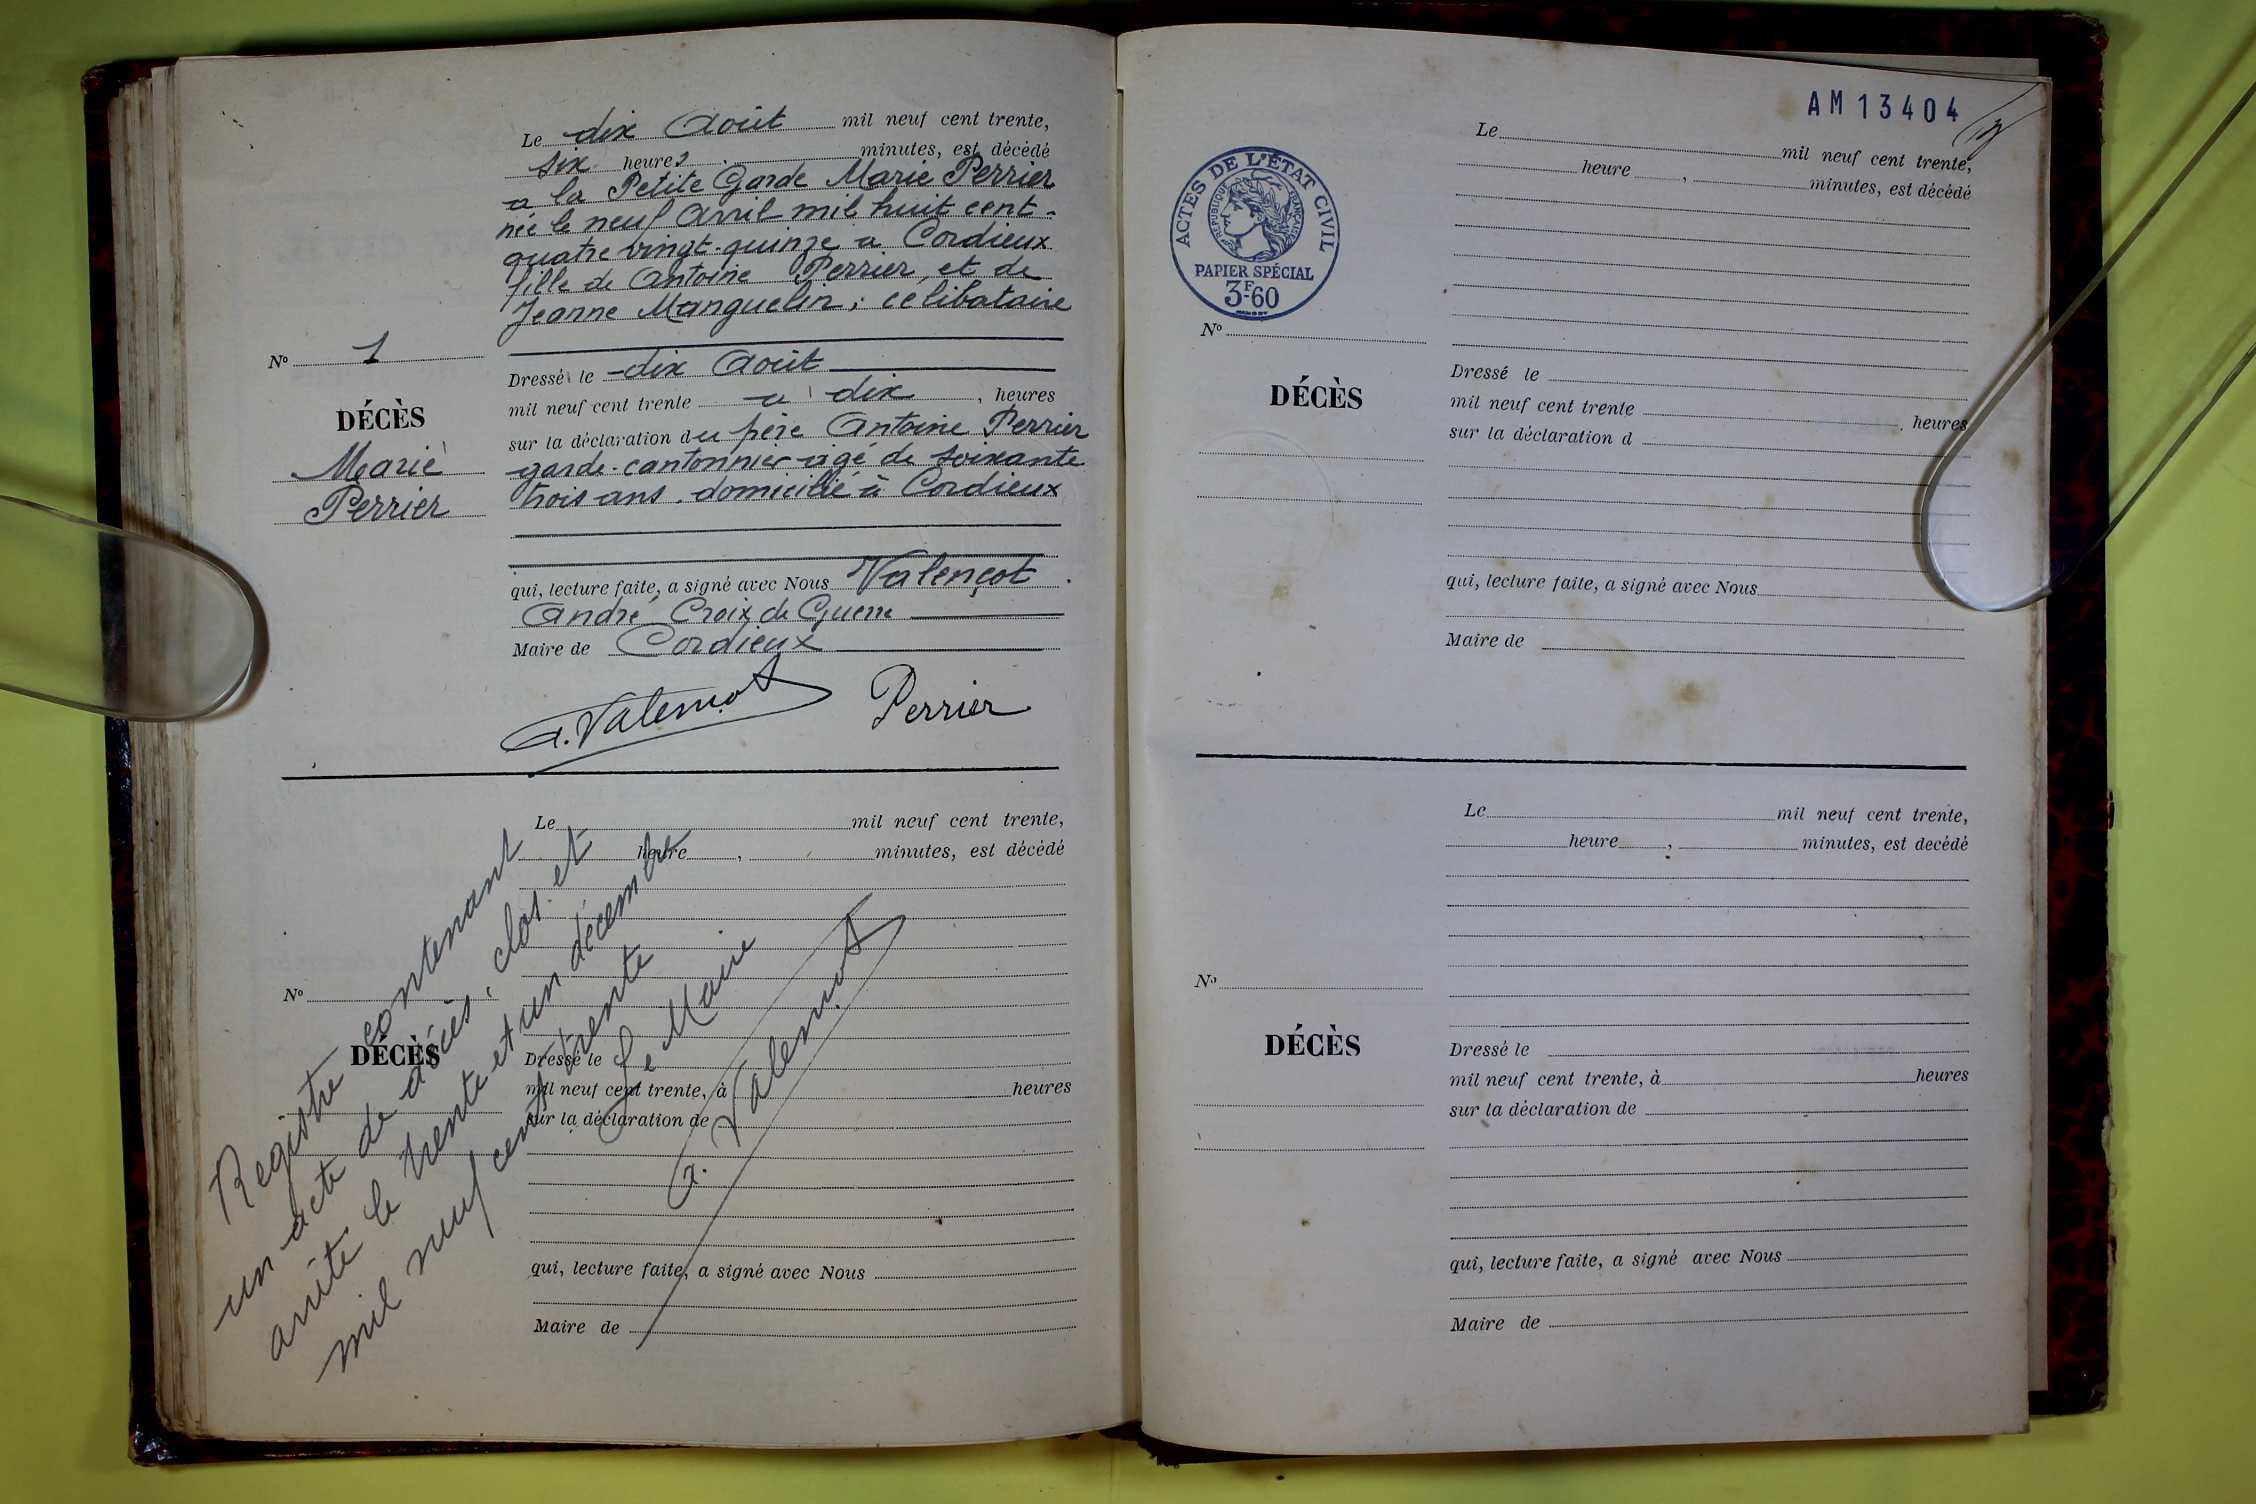 Le dix Août mil neuf cent trente,
six heures minutes, est décédé
a la Petite Garde Marie Perrier
née le neuf Avril mil huit cent-
quatre vingt-quinze a Cordieux
fille de Antoine Perrier, et de
Jeanne Manguelin, célibataire
N° 1
DÉCÈS
Marie
Perrier
Dressé le dix Août
mil neuf cent trente a dix, heures
sur la déclaration du père Antoine Perrier
garde-cantonnier agé de soixante
trois ans, domicilié à Cordieux
qui, lecture faite, a signé avec Nous Valençot
André, Croix de Guerre
Maire de Cordieux
A. Valençot Perrier
Le mil neuf cent trente,
heure , minutes, est décédé
N°
DÉCÈS
Dressé le
mil neuf cent trente, à heures
sur la déclaration de
qui, lecture faite, a signé avec Nous
Maire de
Registre contenant
un acte de décès, clos et
arrêté le trente et un décembre
mil neuf cent trente
Le Maire
A. Valençot
AM 13404
ACTES DE L'ÉTAT CIVIL
RÉPUBLIQUE FRANÇAISE
PAPIER SPÉCIAL
3F.60
Le mil neuf cent trente,
heure , minutes, est décédé
N°
DÉCÈS
Dressé le
mil neuf cent trente , heures
sur la déclaration d
qui, lecture faite, a signé avec Nous
Maire de
Le mil neuf cent trente,
heure , minutes, est decédé
N°
DÉCÈS
Dressé le
mil neuf cent trente, à heures
sur la déclaration de
qui, lecture faite, a signé avec Nous
Maire de